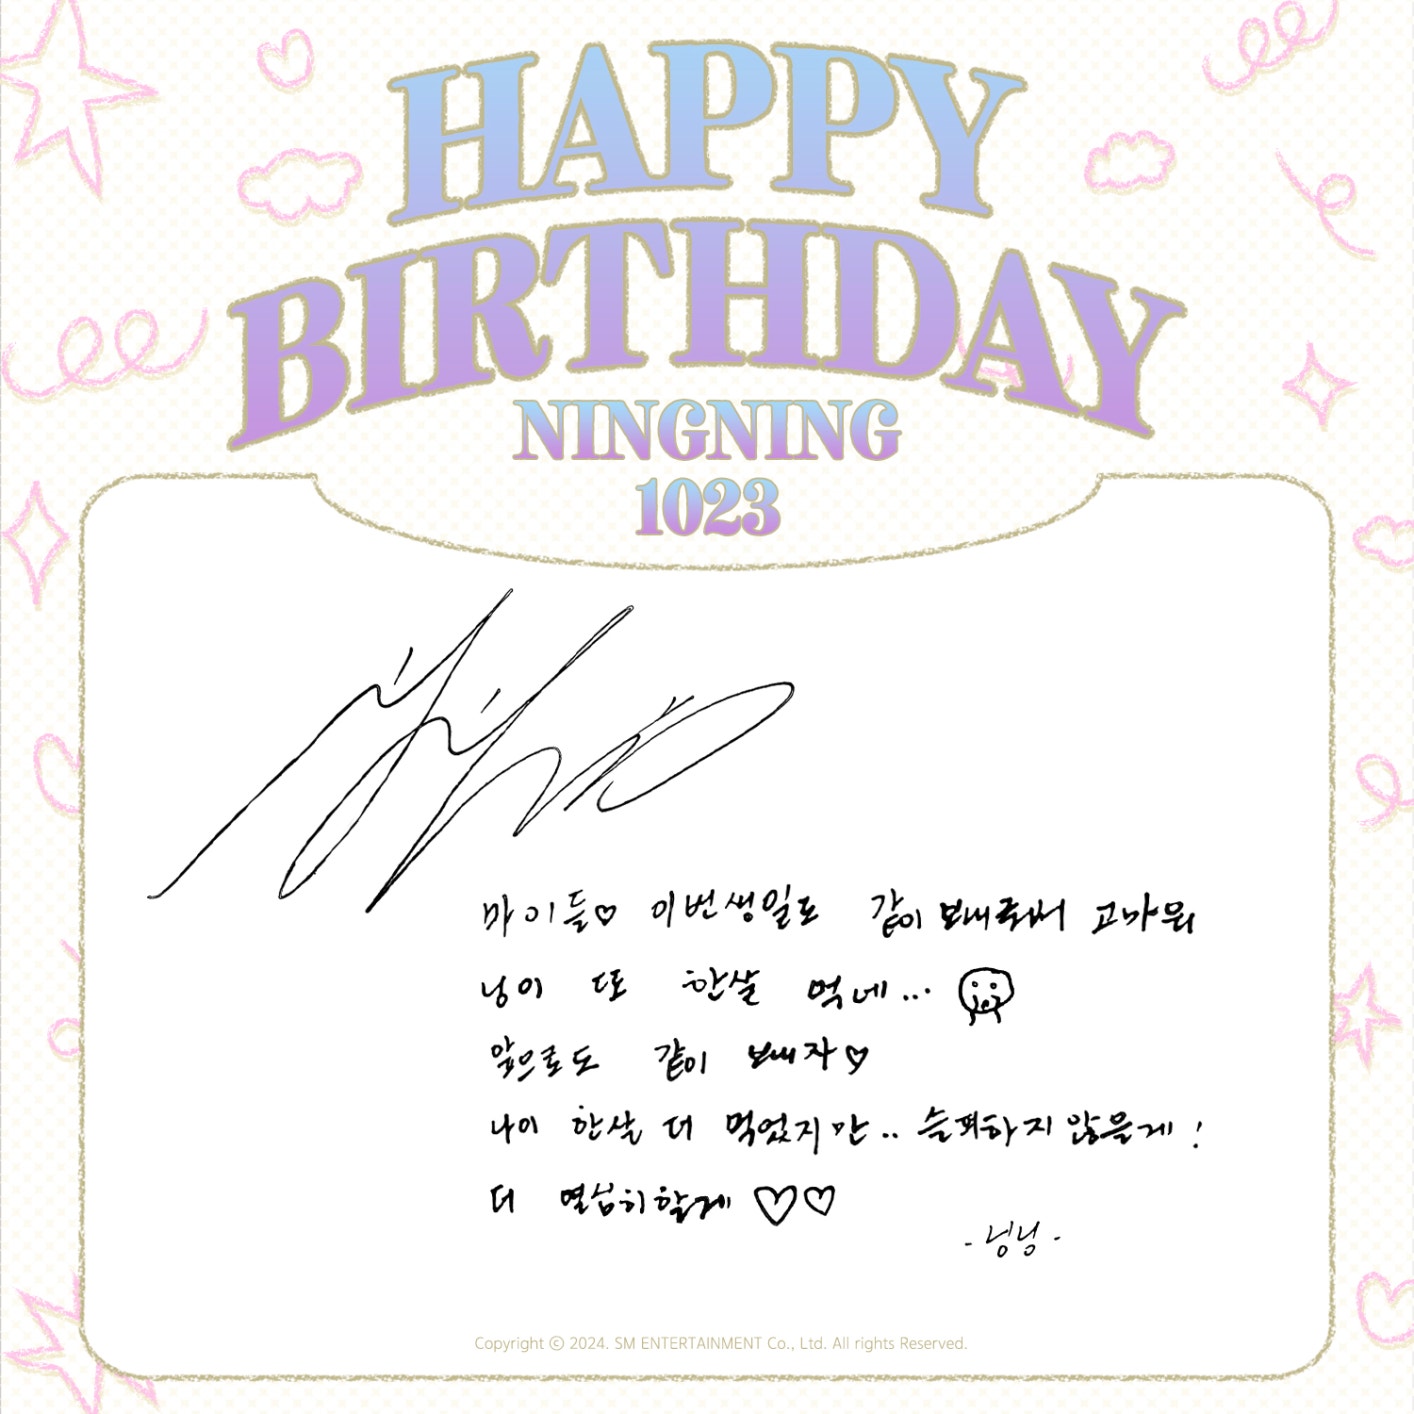 HAPPY
BIRTHDAY
NINGNING
1023
마이들♡ 이번생일도 같이 보내줘서 고마워
닝이 또 한살 먹네...
앞으로도 같이 보내자♡
나이 한살 더 먹었지만.. 슬퍼하지 않을게!
더 열심히할게 ♡♡
- 닝닝 -
Copyright ⓒ 2024. SM ENTERTAINMENT Co., Ltd. All rights Reserved.